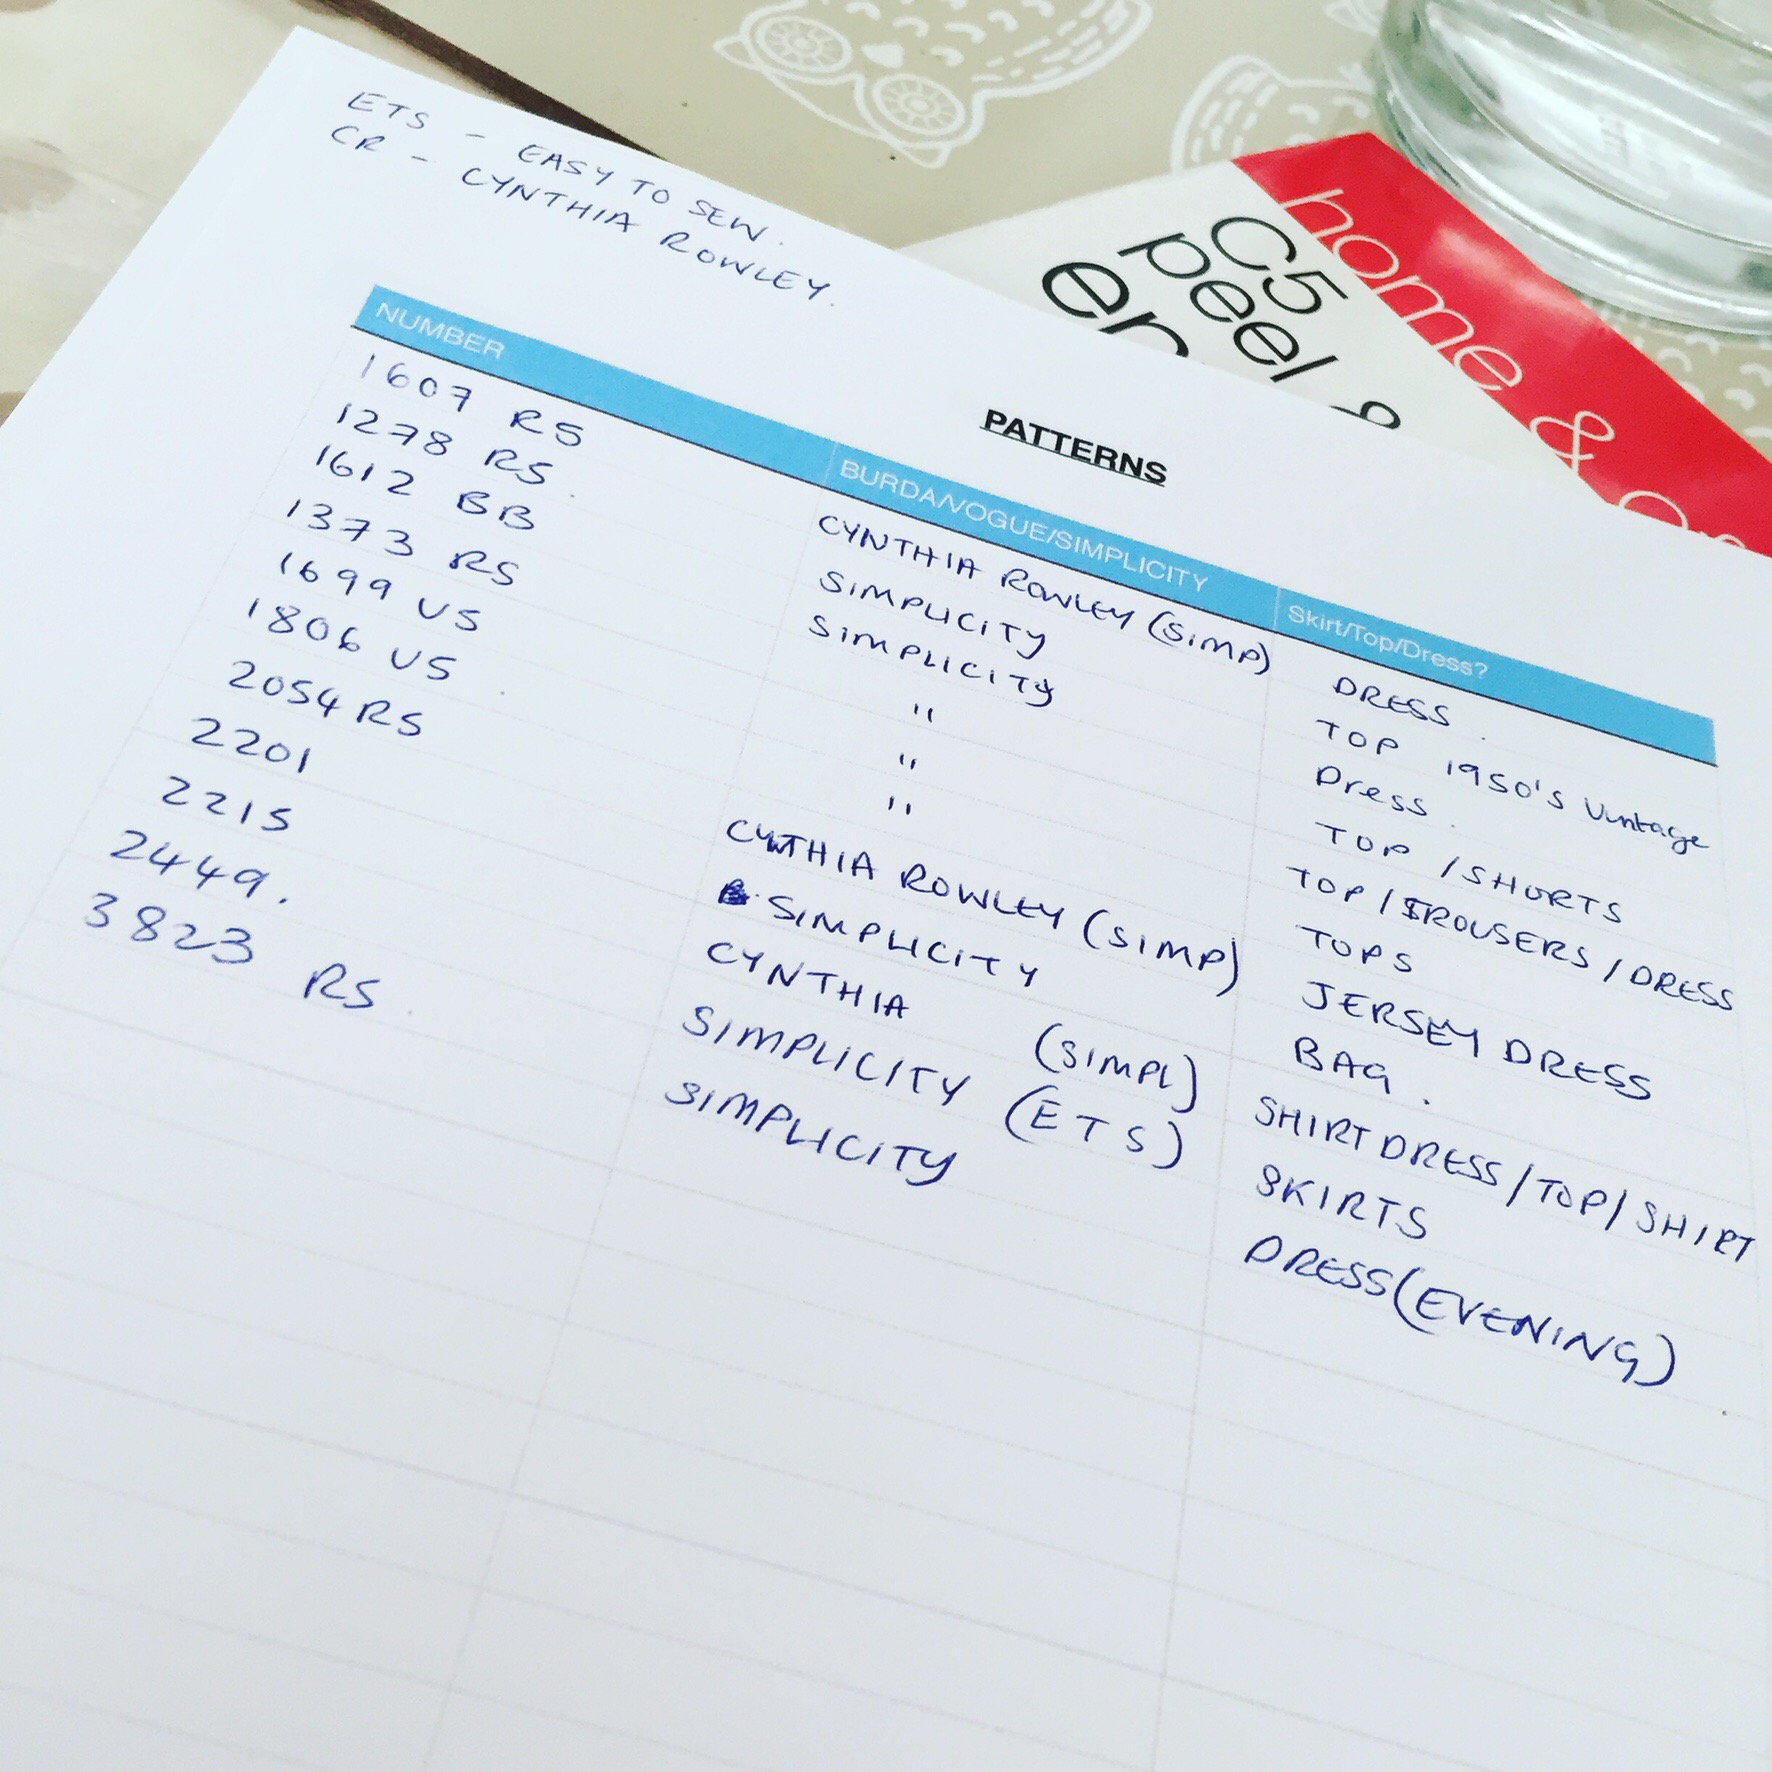 ETS - EASY TO SEW.
CR - CYNTHIA ROWLEY.
PATTERNS
NUMBER BURDA/VOGUE/SIMPLICITY Skirt/Top/Dress?
1607 RS CYNTHIA ROWLEY (SIMP) DRESS.
1278 RS. SIMPLICITY TOP 1950's Vintage
1612 BB SIMPLICITY Dress.
1373 RS " TOP / SHORTS
1699 US " TOP / TROUSERS / DRESS
1806 US " TOPS
2054 RS CYNTHIA ROWLEY (SIMP) JERSEY DRESS
2201 SIMPLICITY BAG.
2215 CYNTHIA (SIMPL) SHIRT DRESS / TOP / SHIRT
2449. SIMPLICITY (ETS) SKIRTS
3823 RS SIMPLICITY DRESS (EVENING)
home &
C5
peel &